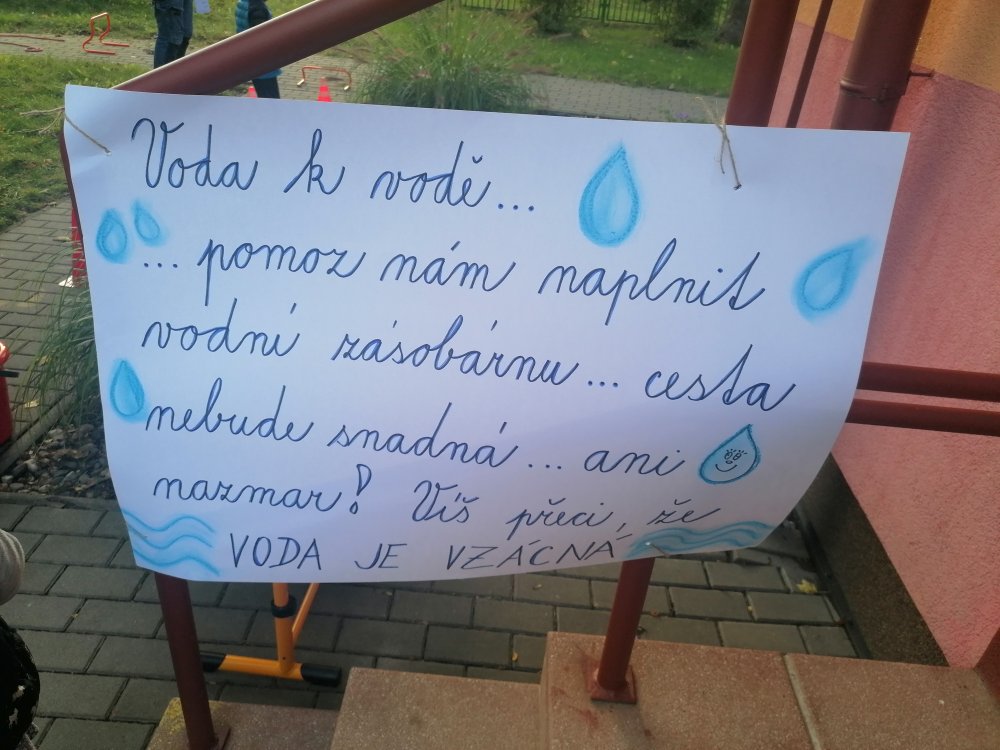 Voda k vodě...
... pomoz nám naplnit
vodní zásobárnu... cesta
nebude snadná... ani
nazmar! Víš přeci, že
VODA JE VZÁCNÁ